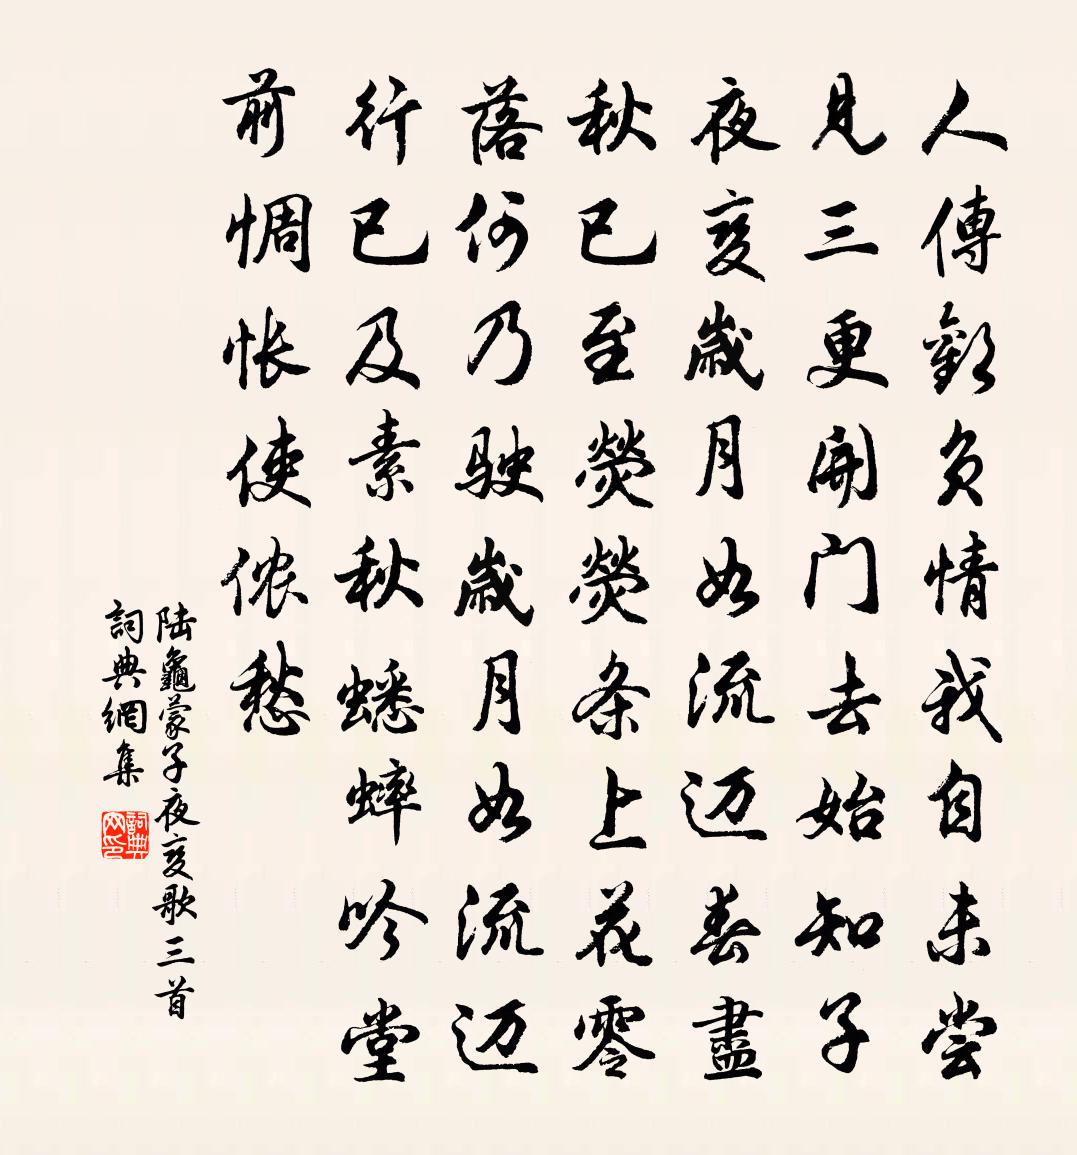 人傳歡負情我自未嘗
見三更開門去始知子
夜變歲月如流邁春盡
秋已至熒熒条上花零
落何乃駛歲月如流邁
行已及素秋蟋蟀吟堂
前惆悵使儂愁
陸龜蒙子夜變歌三首
詞典網集
詞典
网印